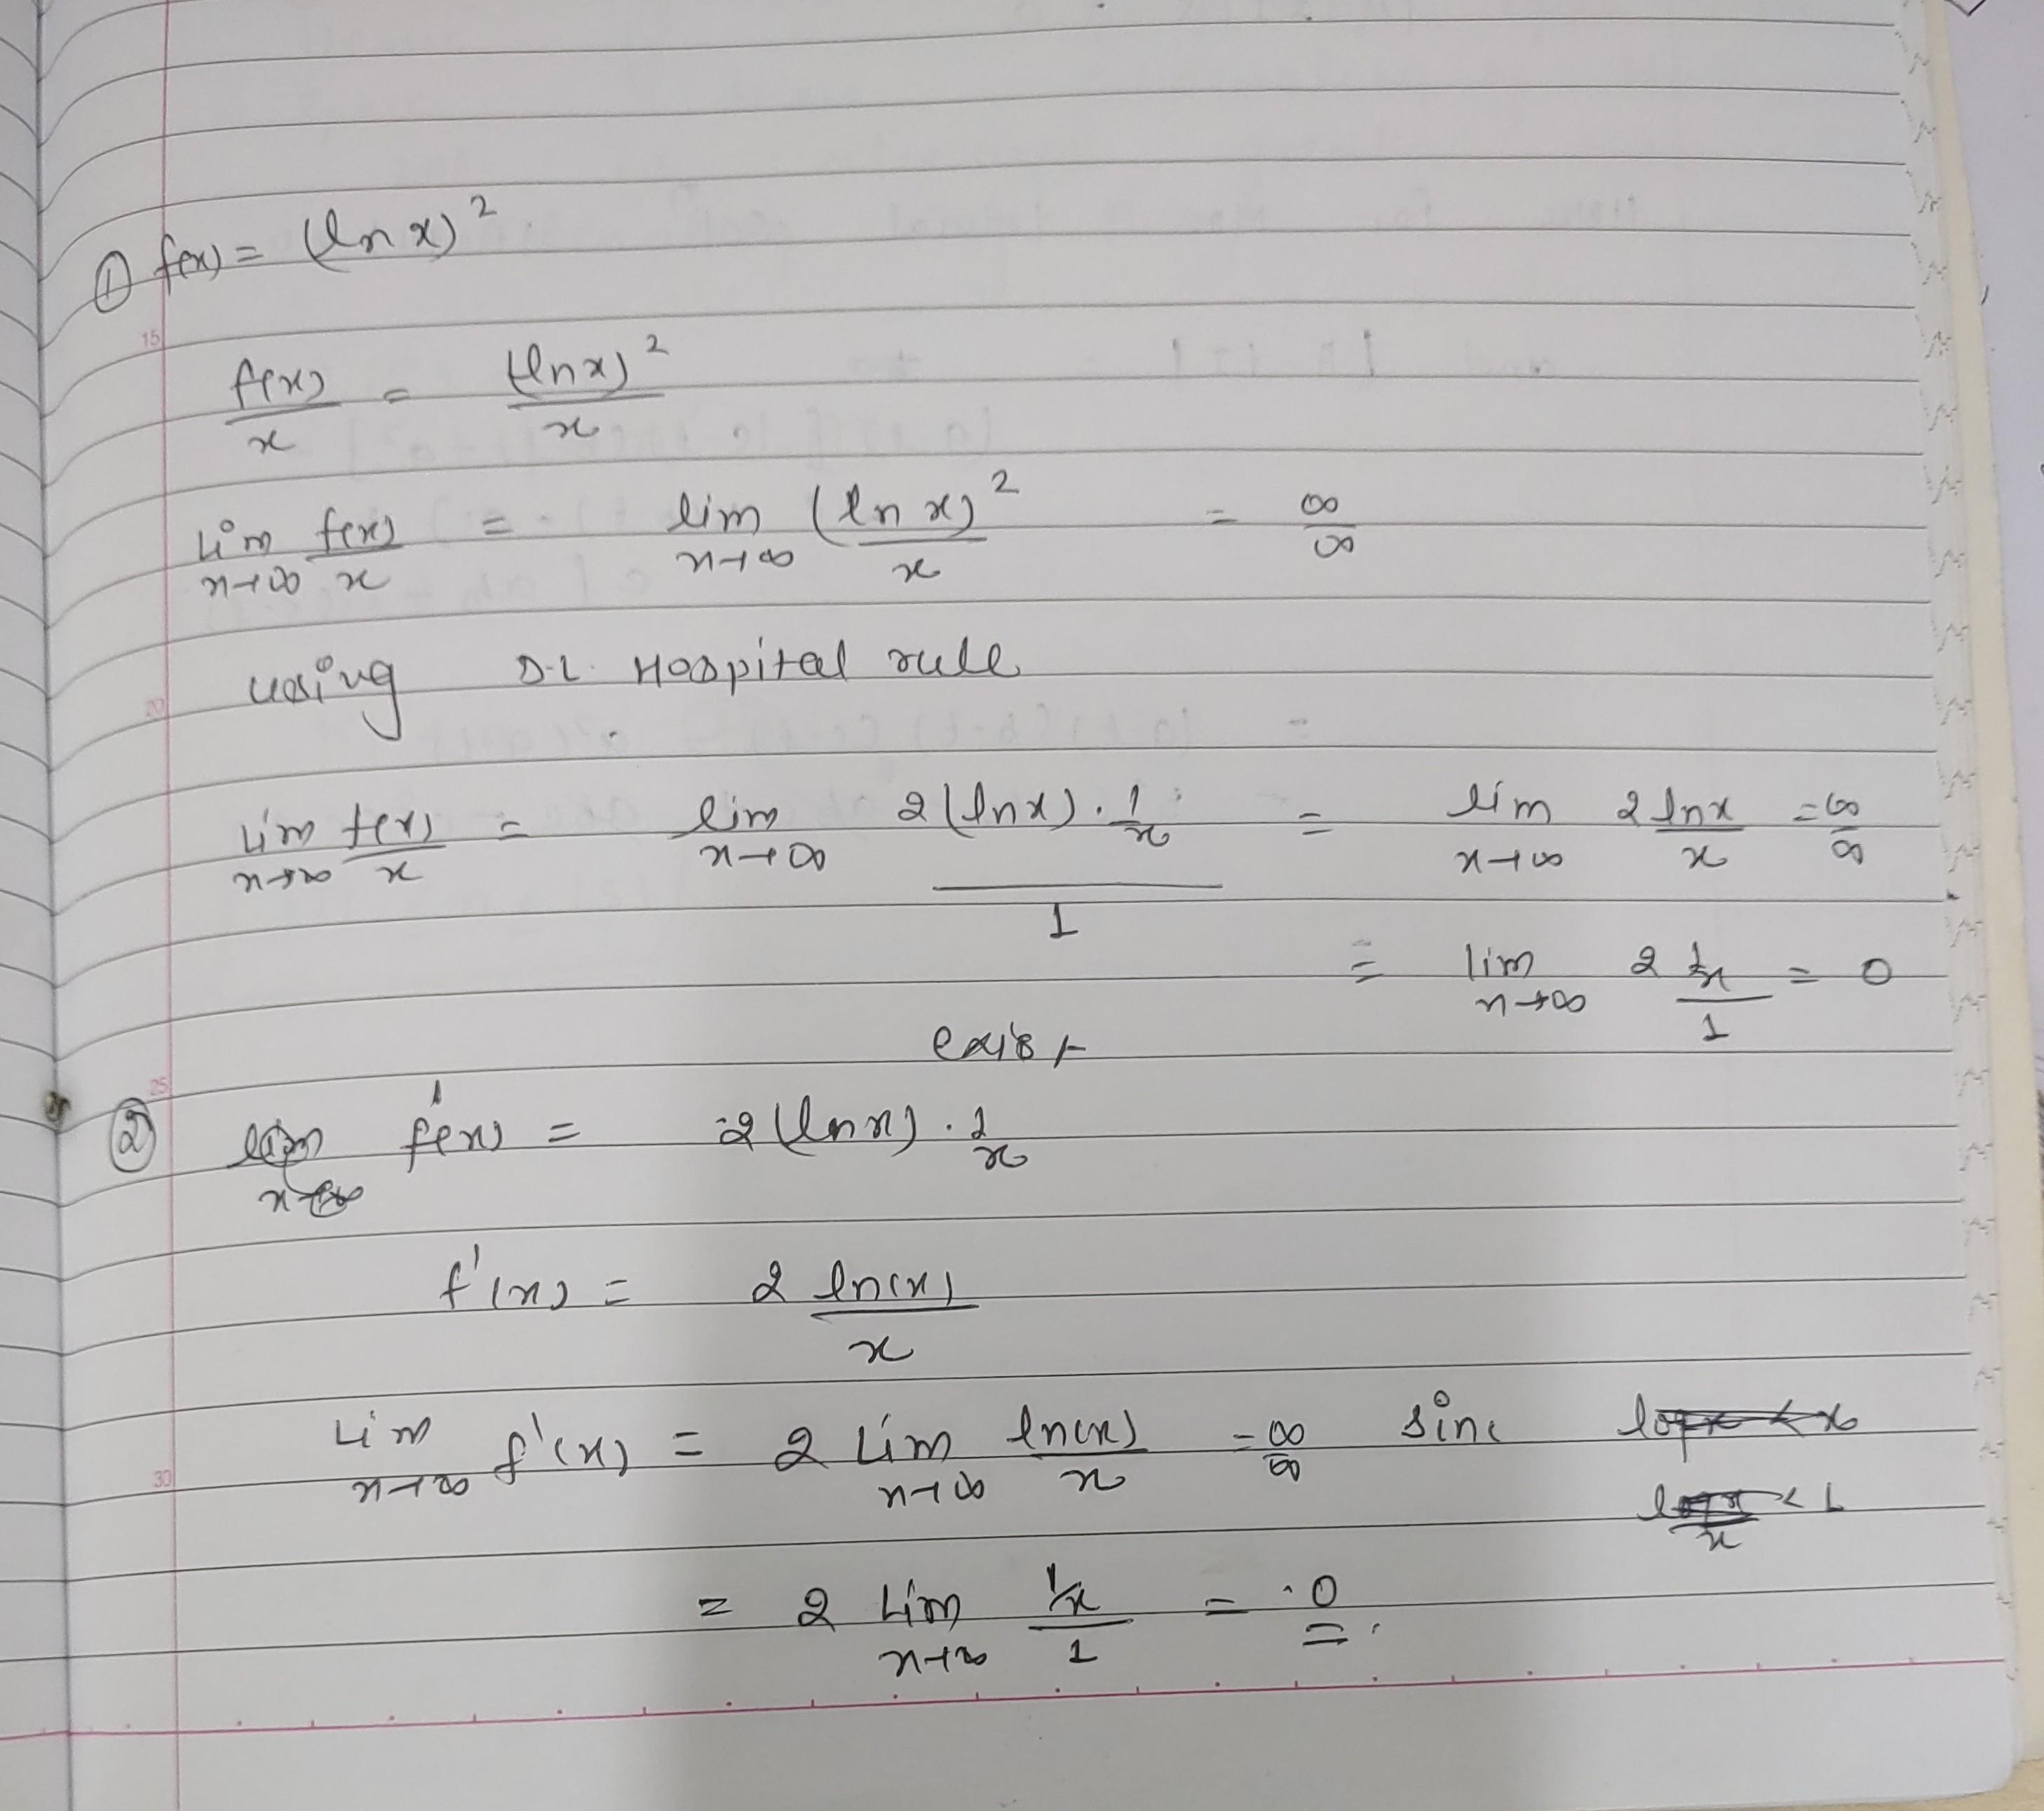 ① f(x) = (ln x)²
15
f(x)/x = (ln x)²/x
Lim n→∞ f(x)/x = lim n→∞ (ln x)²/x = ∞/∞
20
using D.L. Hospital rule
Lim n→∞ f(x)/x = lim n→∞ 2(ln x) . 1/x / 1 = lim x→∞ 2 ln x/x = ∞/∞
= lim n→∞ 2 1/x / 1 = 0
exist
25
② f'(x) = 2(ln x) . 1/x
f'(x) = 2 ln(x)/x
30
Lim n→∞ f'(x) = 2 Lim n→∞ ln(x)/x = ∞/∞ sinc
= 2 Lim n→∞ 1/x / 1 = 0